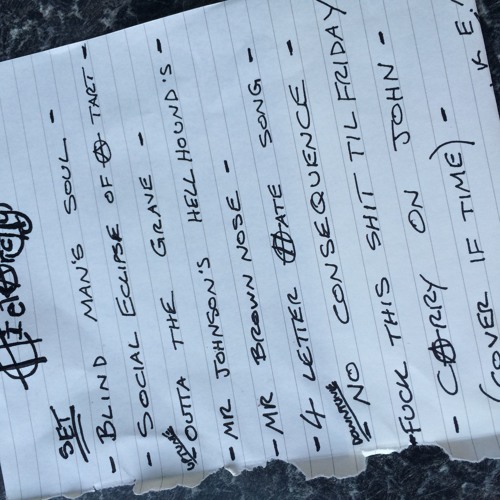 SET
- BLIND MAN'S SOUL -
- SOCIAL ECLIPSE OF A TART -
UPTUNE OUTTA THE GRAVE -
- MR JOHNSON'S HELLHOUND'S -
- MR BROWN NOSE -
- 4 LETTER HATE SONG -
DOWNTUNE NO CONSEQUENCE -
- FUCK THIS SHIT TIL FRIDAY
- CARRY ON JOHN -
(COVER IF TIME) -